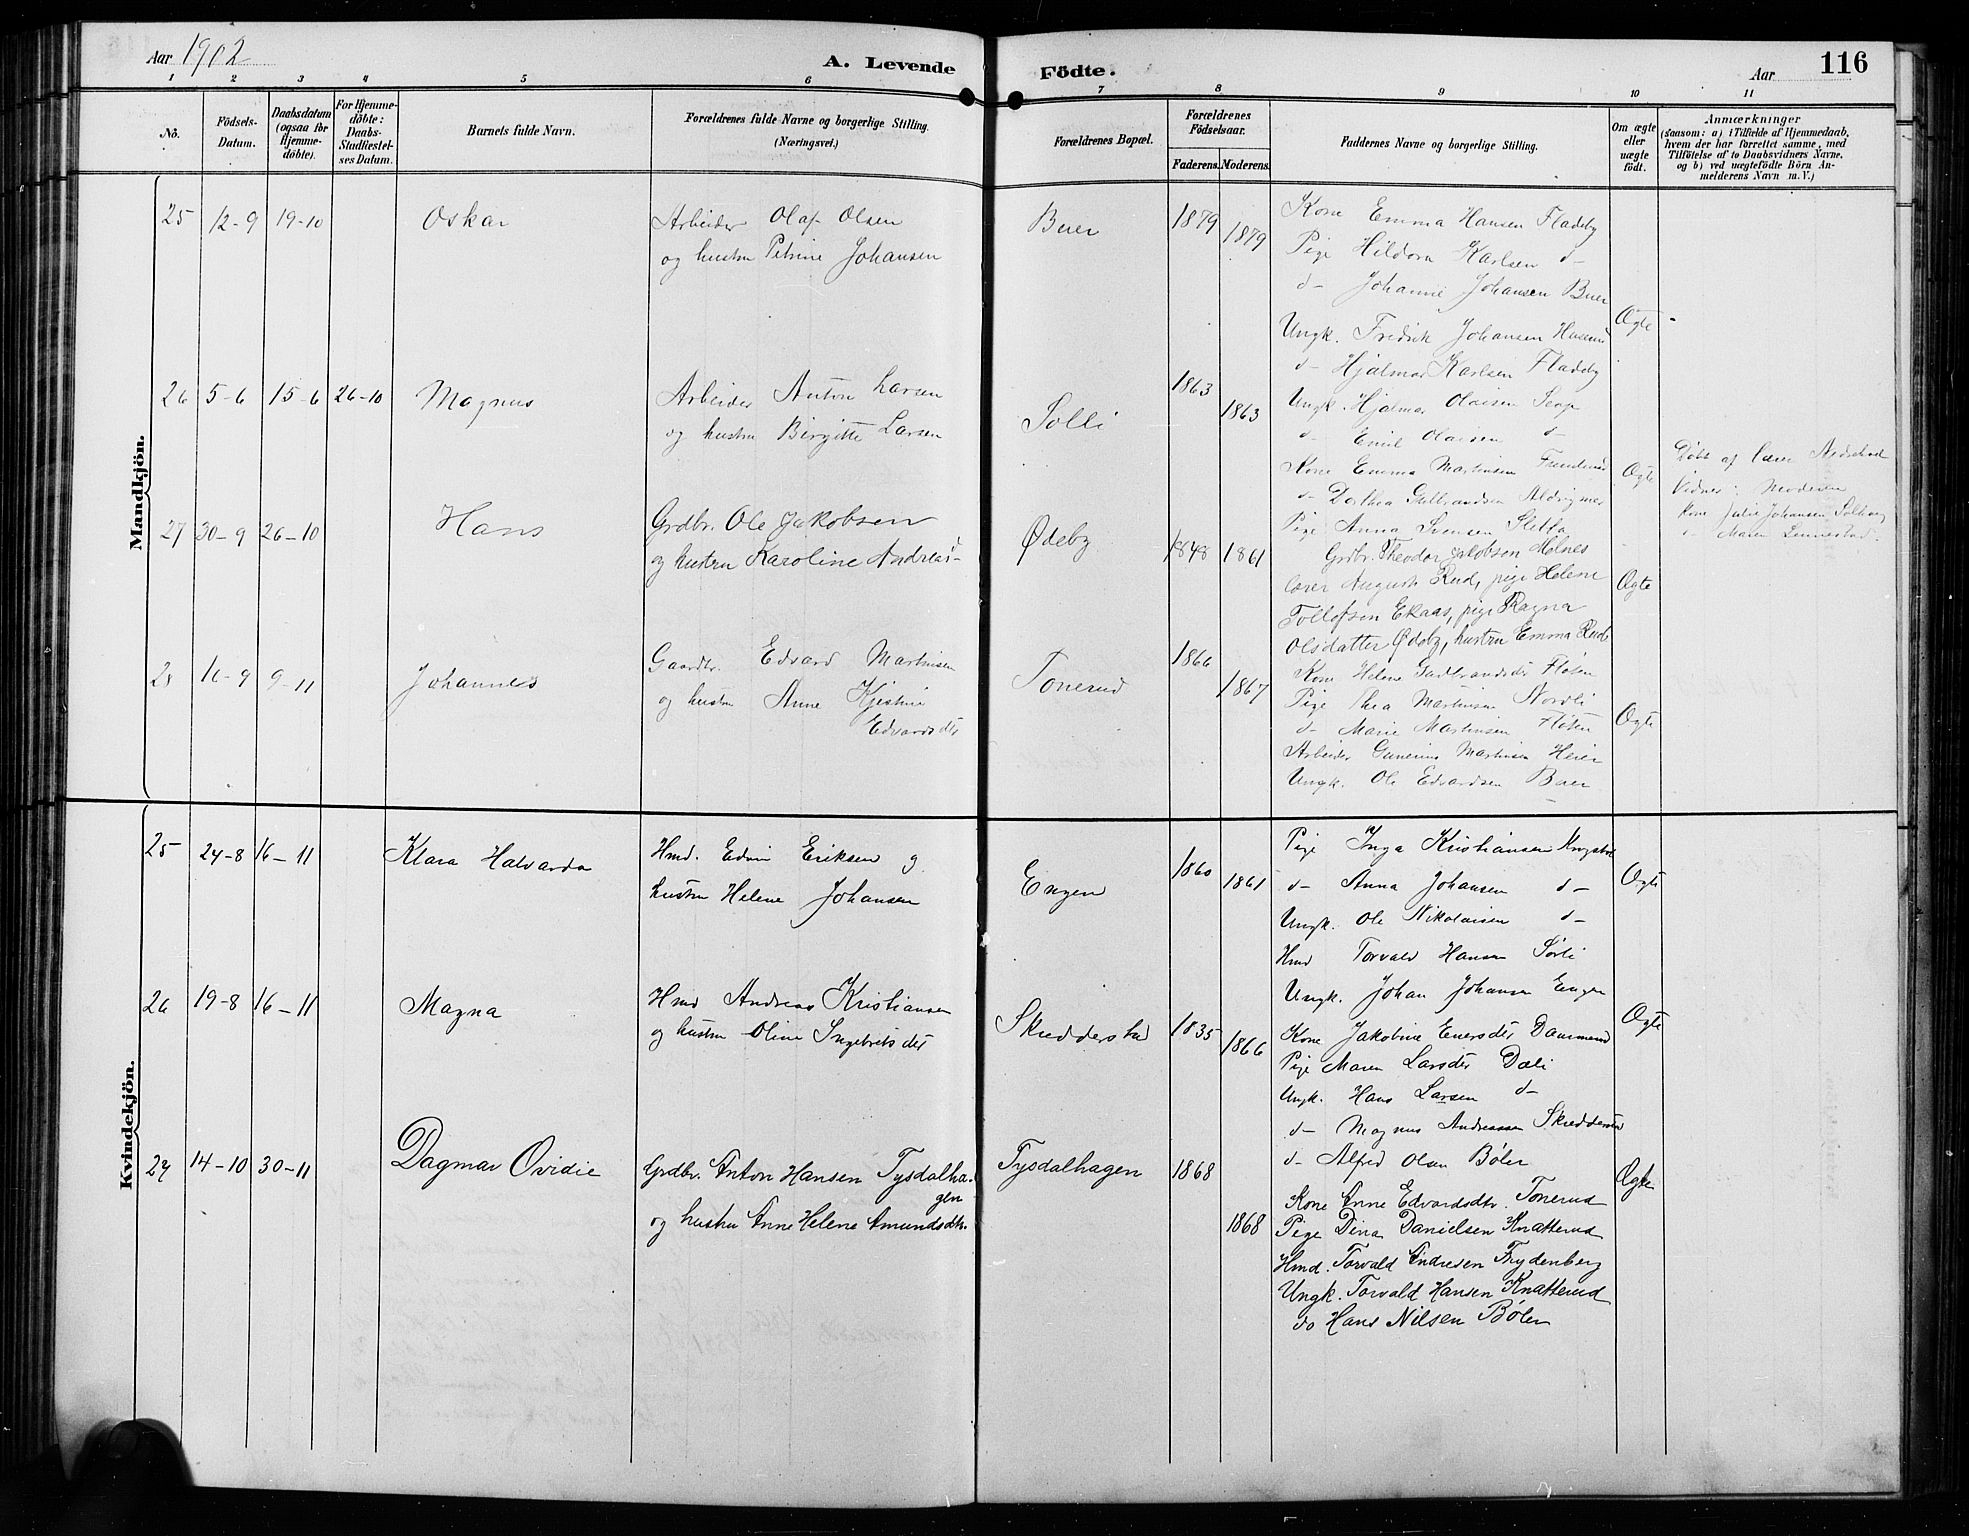 Aar 1902
A. Levende Födte.
Aar
116
1 2 3 4 5 6 7 8 9 10 11
Nô.
Födsels-Datum.
Daabsdatum (ogsaa for Hjemme-döbte).
For Hjemme-döbte: Daabs-Stadfæstel-ses Datum.
Barnets fulde Navn.
Forældrenes fulde Navne og borgerlige Stilling.
(Næringsvei.)
Forældrenes Bopæl.
Forældrenes Födselsaar.
Faderens. Moderens.
Faddernes Navne og borgerlige Stilling.
Om ægte eller uægte født.
Anmærkninger
(saasom: a) i Tilfælde af Hjemmedaab, hvem der har forrettet samme, med Tilföielse af to Daabsvidners Navne, og b) ved uægtefödte Börn An-melderens Navn m. V.)
Mandkjön.
25 12-9 19-10 Oskar
Arbeider Olaf Olsen
og hustru Petrine Johansen
Buer 1879 1879
Kone Emma Hansen Fladeby
Pige Hildora Karlsen d-
d- Johanne Johansen Buer
Ungk. Fredrik Johansen
d- Hjalmar Karlsen Fladeby
Ægte
26 5-6 15-6 26-10 Magnus
Arbeider Anton Larsen
og hustru Birgitte Larsen
Solli 1863 1863
Ungk. Hjalmar Olaisen
d- Emil Olaisen d-
Kone Emma Martinsen
d- Dorthea Gulbrandsen
Pige Anna Svensen Sletta
Ægte
Døbt af lærer
Vidner: Moderen
Kone Julie Johansen Solberg
d- Maren
27 30-9 26-10 Hans
Grdbr. Ole Jakobsen
og hustru Karoline Andreas-
Ødeby 1848 1861
Grdbr. Theodor Jakobsen Holnes
lærer August Rud, pige Helene
Tollofsen Ekaas, pige Ragna
Olsdatter Ødeby, hustru Emma Rud
Ægte
28 11-9 9-11 Johannes
Gaardbr. Edvard Martinsen
og hustru Anne Kjestine
Edvardsdtr
Tonerud 1866 1867
Kone Helene Gudbrandsdtr Fløten
Pige Thea Martinsen Nordli
d- Marie Martinsen Fløten
Arbeider Gunerius Martinsen Heier
Ungk. Ole Edvardsen Buer
Ægte
Kvindekjön.
25 24-8 16-11 Klara Halvarda
Hmd. Edvin Eriksen og
hustru Helene Johansen
Engen 1860 1861
Pige Inga Kristiansen
d- Anna Johansen d-
Ungk. Ole Nikolaisen d-
Hmd Torvald Hansen Sørli
Ungk. Johan Johansen Engen
Ægte
26 19-8 16-11 Magna
Hmd Andreas Kristiansen
og hustru Oline Ingebretsdtr
Skreddersted 1835 1866
Kone Jakobine Enersdtr
Pige Maren Larsdtr Dæli
Ungk. Hans Larsen d-
d- Magnus Andreassen
d- Alfred Olsen Bøler
Ægte
27 14-10 30-11 Dagmar Ovidie
Grdbr. Anton Hansen Tysdalha-
gen
og hustru Anne Helene Amundsdtr.
Tysdalhagen 1868 1868
Kone Anne Edvardsdtr. Tonerud
Pige Dina Danielsen Knatterud
Hmd. Torvald Andresen Frydenberg
Ungk. Torvald Hansen Knatterud
do Hans Nilsen Bøler
Ægte